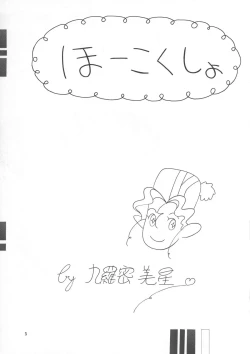 ほーこくしょ
by 九羅密 美星